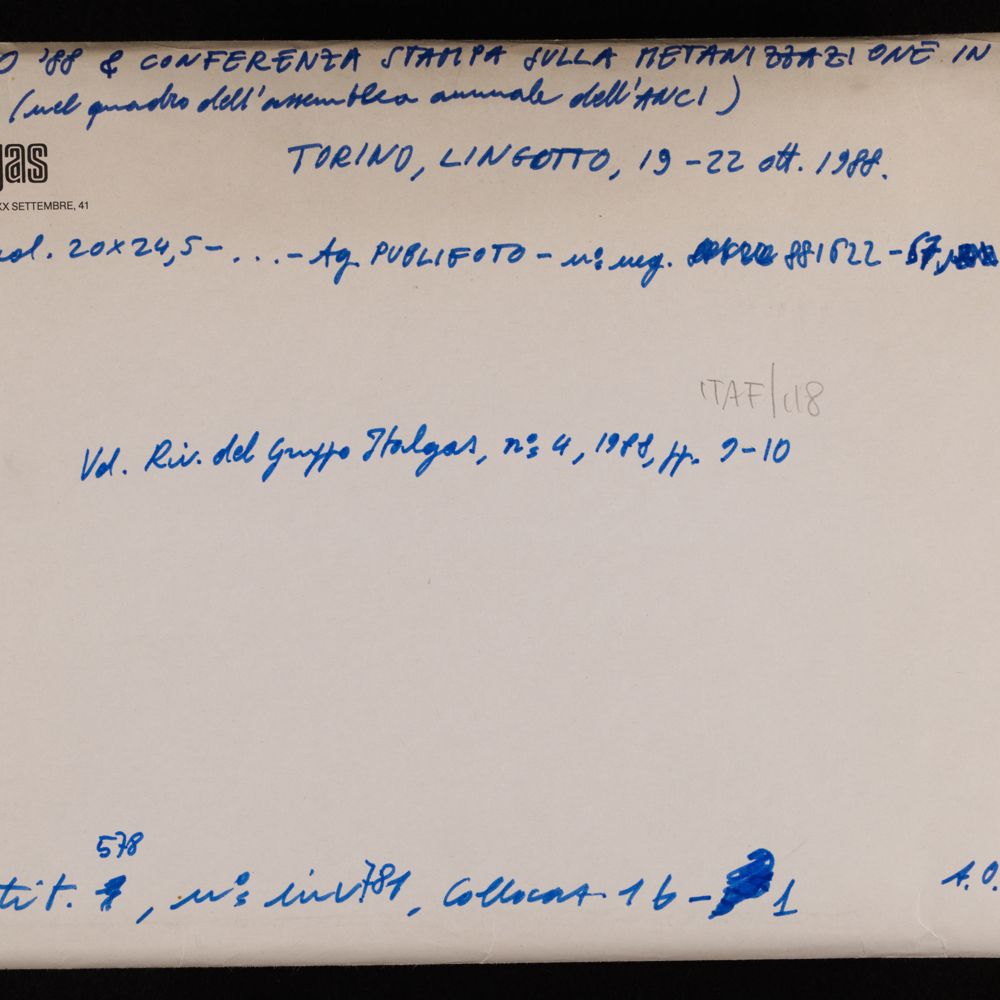 O '88 & CONFERENZA STAMPA SULLA METANIZZAZIONE IN
(nel quadro dell'assemblea annuale dell'ANCI)
gas
TORINO, LINGOTTO, 19-22 ott. 1988.
XX SETTEMBRE, 41
col. 20x24,5 - ... - Ag. PUBLIFOTO - n° neg. 881622-67,
ITAF/118
Vd. Riv. del Gruppo Italgas, n° 4, 1988, pp. 9-10
578
tit. , n° inv 781, Collocaz. 1 b - 1
A.O.